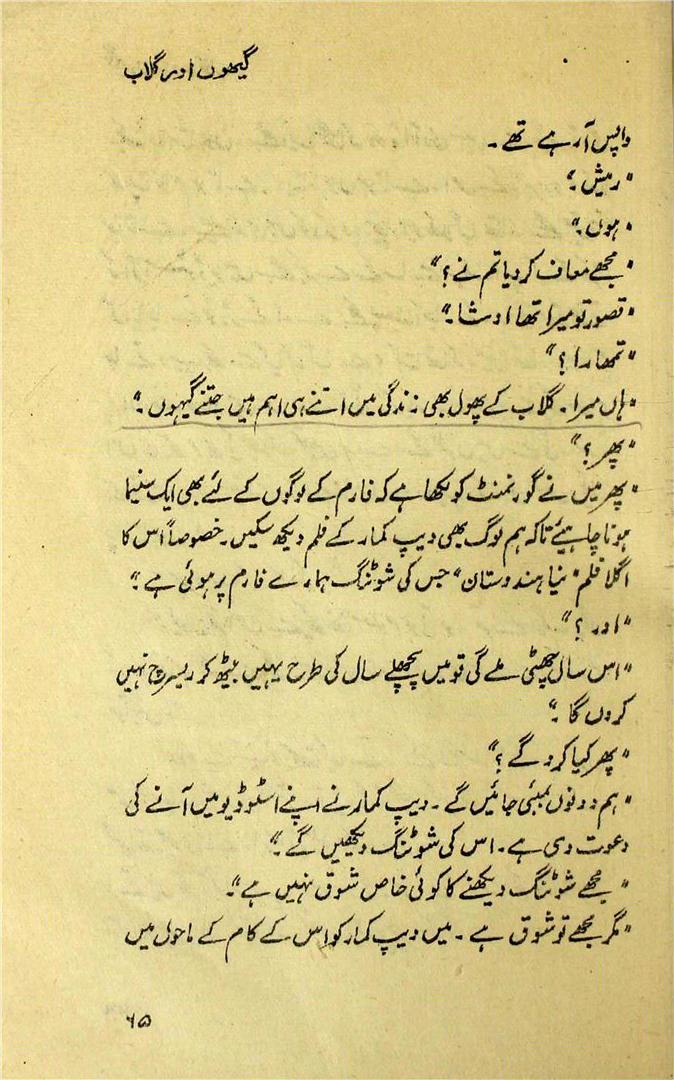 گیھوں اور گلاب
واپس آرہے تھے۔
"رمیش۔"
"ہوں۔"
"مجھے معاف کر دیا تم نے؟"
"قصور تو میرا تھا اوشا۔"
"تمھارا؟"
"ہاں میرا۔ گلاب کے پھول بھی زندگی میں اتنے ہی اہم ہیں جتنے گیہوں۔"
"پھر؟"
"پھر میں نے گورنمنٹ کو لکھا ہے کہ فارم کے لوگوں کے لئے بھی ایک سنیما
ہونا چاہیئے تاکہ ہم لوگ بھی دیپ کمار کے فلم دیکھ سکیں۔ خصوصاً اس کا
اگلا فلم "نیا ہندوستان" جس کی شوٹنگ ہمارے فارم پر ہوئی ہے۔"
"اور؟"
"اس سال چھٹی ملے گی تو میں پچھلے سال کی طرح یہیں بیٹھ کر ریسرچ نہیں
کروں گا۔"
"پھر کیا کرو گے؟"
"ہم دونوں بمبئی جائیں گے۔ دیپ کمار نے اپنے اسٹوڈیو میں آنے کی
دعوت دی ہے۔ اس کی شوٹنگ دیکھیں گے۔"
"مجھے شوٹنگ دیکھنے کا کوئی خاص شوق نہیں ہے"۔
"مگر مجھے تو شوق ہے۔ میں دیپ کمار کو اس کے کام کے ماحول میں
۶۵